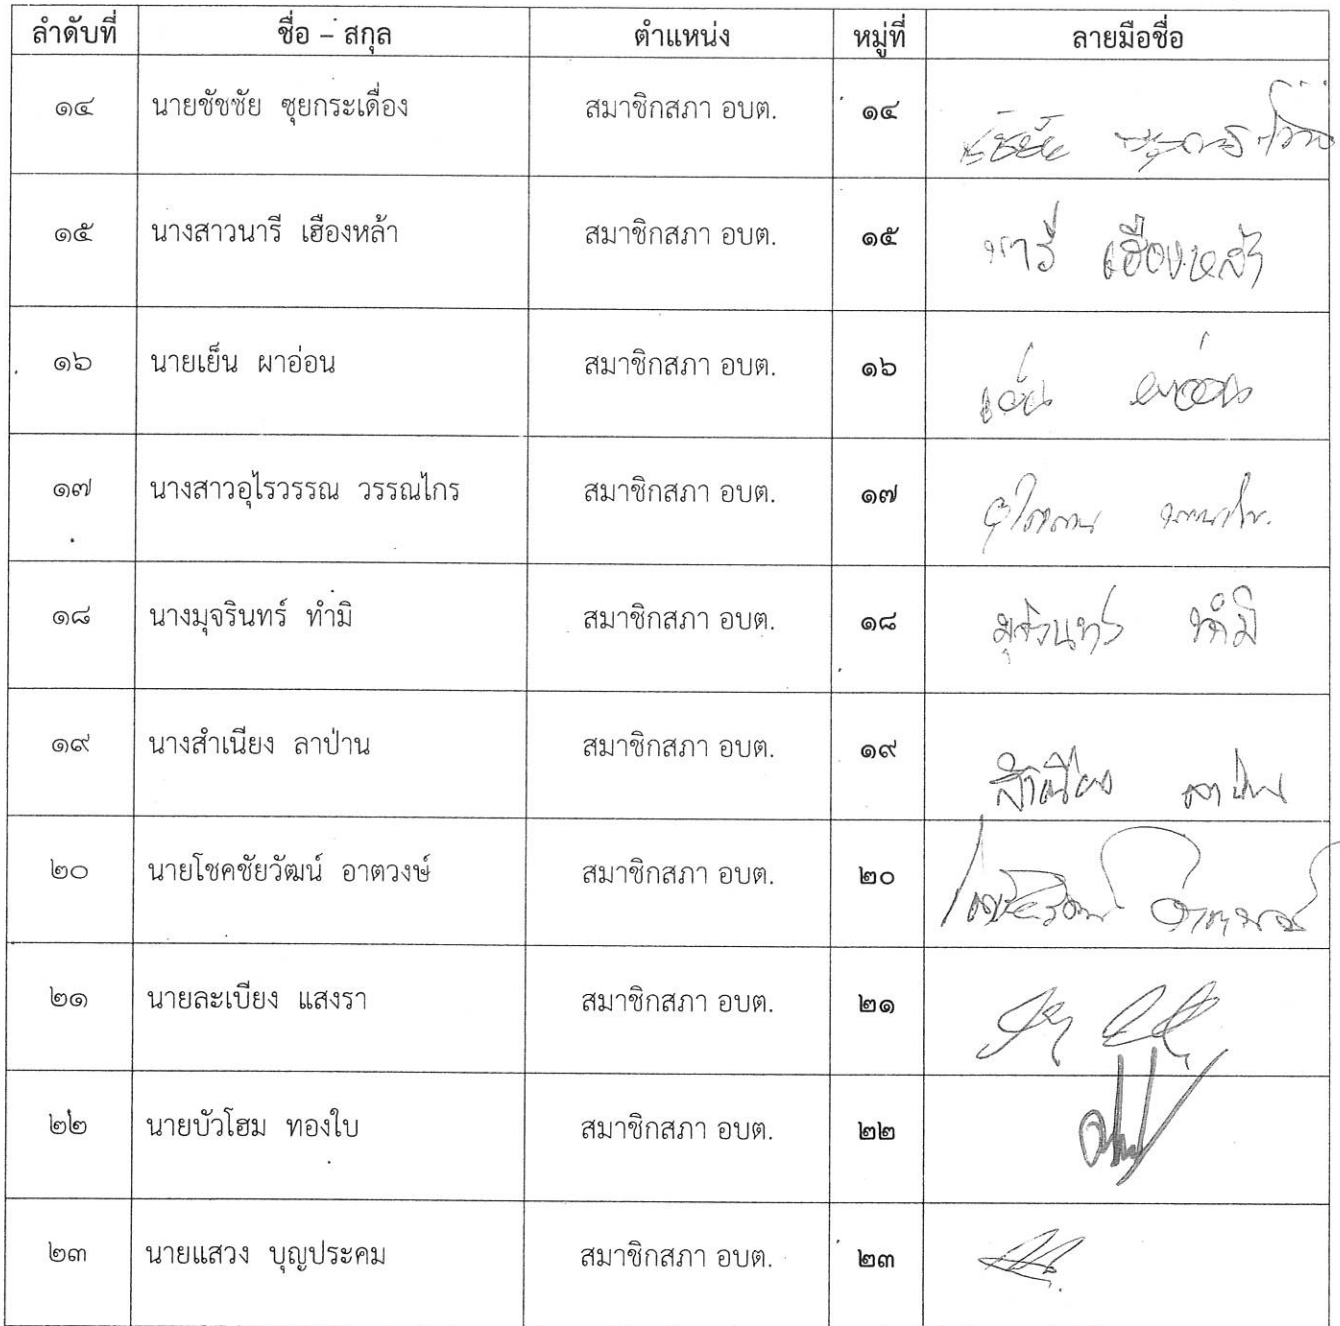 ลำดับที่ ชื่อ – สกุล ตำแหน่ง หมู่ที่ ลายมือชื่อ
๑๔ นายชัชชัย ซุยกระเดื่อง สมาชิกสภา อบต. ๑๔
๑๕ นางสาวนารี เฮืองหล้า สมาชิกสภา อบต. ๑๕ นารี เฮืองหล้า
๑๖ นายเย็น ผาอ่อน สมาชิกสภา อบต. ๑๖ เย็น ผาอ่อน
๑๗ นางสาวอุไรวรรณ วรรณไกร สมาชิกสภา อบต. ๑๗
๑๘ นางมุจรินทร์ ทำมิ สมาชิกสภา อบต. ๑๘ มุจรินทร์ ทำมิ
๑๙ นางสำเนียง ลาป่าน สมาชิกสภา อบต. ๑๙ สำเนียง ลาป่าน
๒๐ นายโชคชัยวัฒน์ อาตวงษ์ สมาชิกสภา อบต. ๒๐
๒๑ นายละเบียง แสงรา สมาชิกสภา อบต. ๒๑
๒๒ นายบัวโฮม ทองใบ สมาชิกสภา อบต. ๒๒
๒๓ นายแสวง บุญประคม สมาชิกสภา อบต. ๒๓